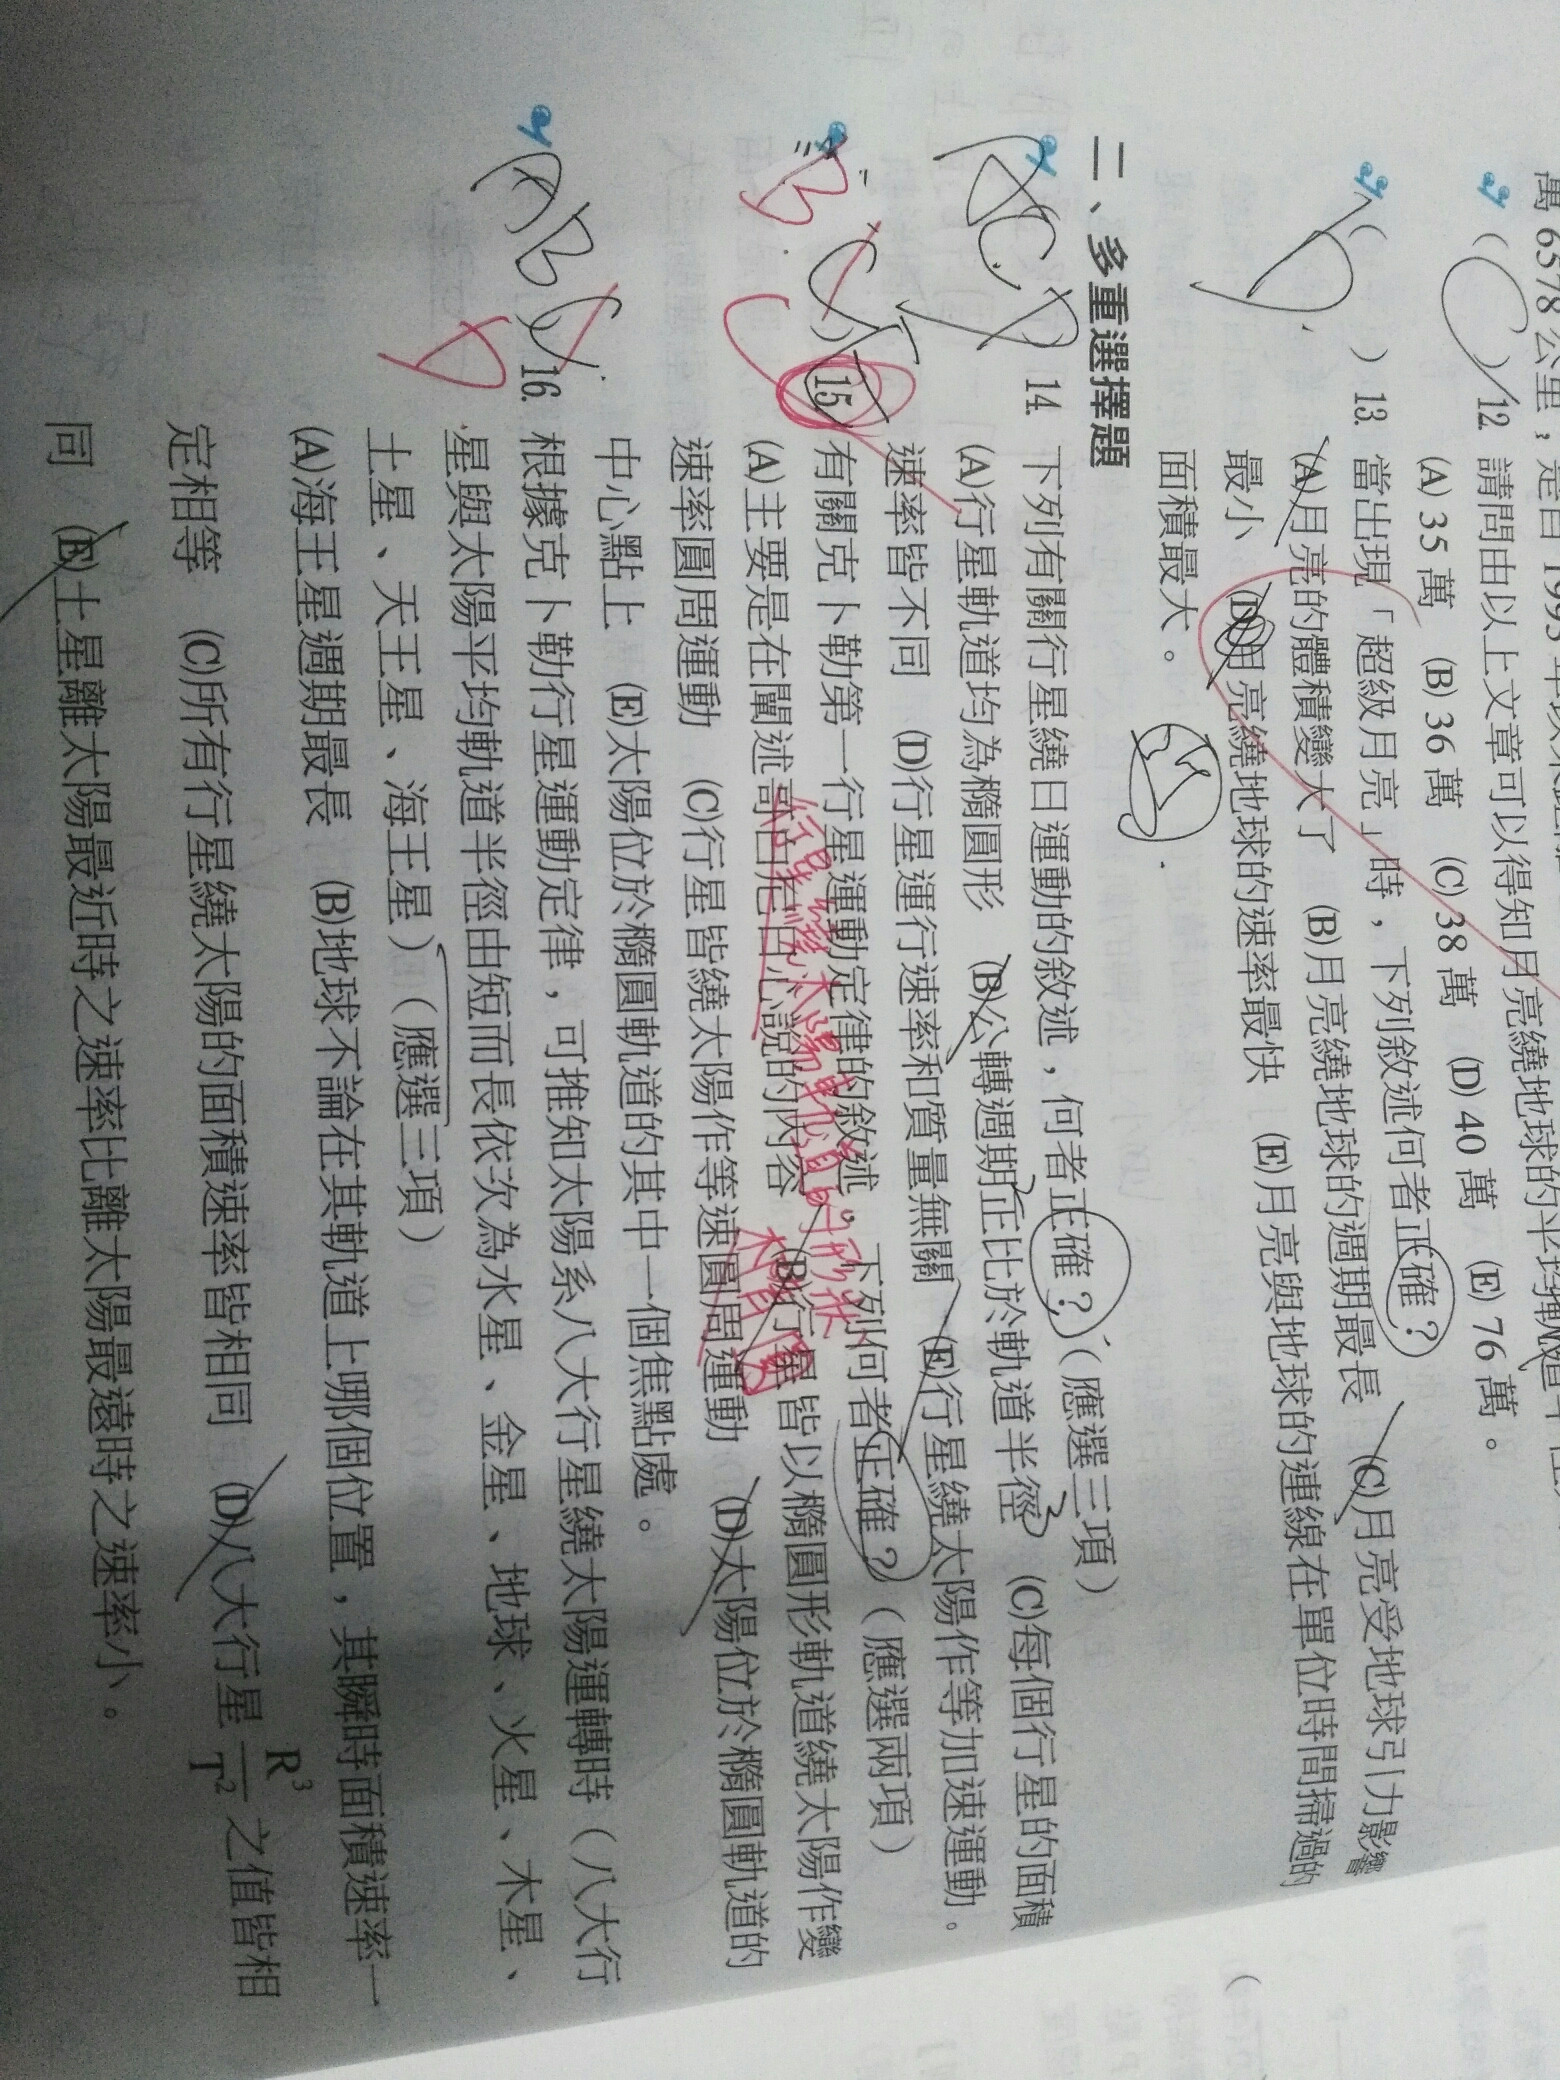 萬6578公里，是自1993年以來
12. 請問由以上文章可以得知月亮繞地球的平均軌道半徑
(A) 35萬 (B) 36萬 (C) 38萬 (D) 40萬 (E) 76萬。
D ( ) 13. 當出現「超級月亮」時，下列敘述何者正確？
(A)月亮的體積變大了 (B)月亮繞地球的週期最長 (C)月亮受地球引力影響
最小 (D)月亮繞地球的速率最快 (E)月亮與地球的連線在單位時間掃過的
面積最大。
二、多重選擇題
ACD 14. 下列有關行星繞日運動的敘述，何者正確？（應選三項）
(A)行星軌道均為橢圓形 (B)公轉週期正比於軌道半徑 (C)每個行星的面積
速率皆不同 (D)行星運行速率和質量無關 (E)行星繞太陽作等加速運動。
15. 有關克卜勒第一行星運動定律的敘述。下列何者正確？（應選兩項）
行星繞太陽軌道的形狀
(A)主要是在闡述哥白尼日心說的內容 (B)行星皆以橢圓形軌道繞太陽作變
速率圓周運動 (C)行星皆繞太陽作等速圓周運動 (D)太陽位於橢圓軌道的
中心點上 (E)太陽位於橢圓軌道的其中一個焦點處。
16. 根據克卜勒行星運動定律，可推知太陽系八大行星繞太陽運轉時（八大行
星與太陽平均軌道半徑由短而長依次為水星、金星、地球、火星、木星、
土星、天王星、海王星）（應選三項）
(A)海王星週期最長 (B)地球不論在其軌道上哪個位置，其瞬時面積速率一
定相等 (C)所有行星繞太陽的面積速率皆相同 (D)八大行星 R³/T² 之值皆相
同 (E)土星離太陽最近時之速率比離太陽最遠時之速率小。